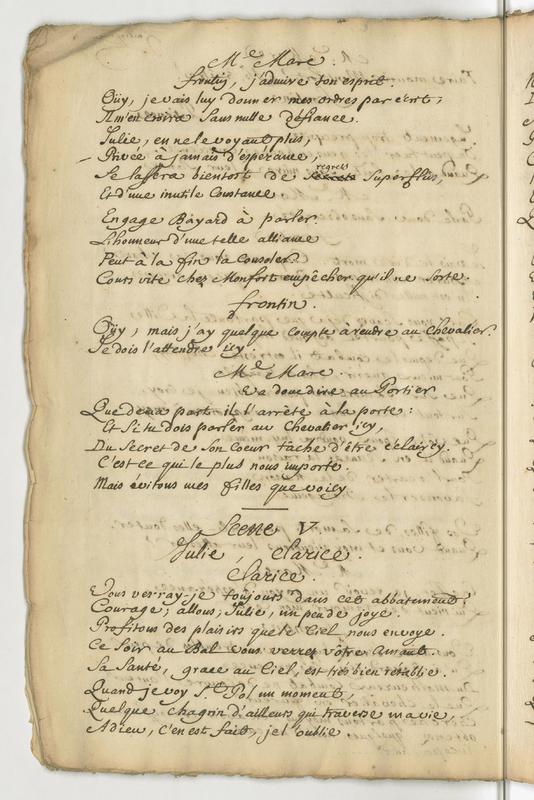 Me Marc.
frontin, j'admire ton esprit.
Oüy, je vais luy donner mes ordres par écrit,
Il m'en croira sans nulle défiance.
Julie, en ne le voyant plus,
Privée à jamais d'esperance,
regrets
Se lassera bientost de superflus,
Et d'une inutile Constance.
Engage Bayard à parler
L'honneur d'une telle alliance
Peut à la fin la Consoler.
Cours vite chez Monfort empêcher qu'il ne sorte.
frontin.
Oüy, mais j'ay quelque compte à rendre au Chevalier
Je dois l'attendre icy.
Me Marc.
Va donc dire au Portier
Que de ma part il l'arrête à la porte:
Et si tu dois parler au Chevalier icy,
Du Secret de Son Coeur tache d'être éclaircy.
C'est ce qui le plus nous importe.
Mais évitons mes filles que voicy
Scene V.
Julie, Clarice.
Clarice.
Vous verray-je toujours dans cet abbatement?
Courage, allons, Julie, un peu de joye.
Profitons des plaisirs que le Ciel nous envoye.
Ce Soir au Bal vous verrez votre amant.
Sa Santé, grace au Ciel, est très bien rétablie.
Quand je voy St. Pol un moment,
Quelque chagrin d'ailleurs qui traverse ma vie,
Adieu, c'en est fait, je l'oublie.